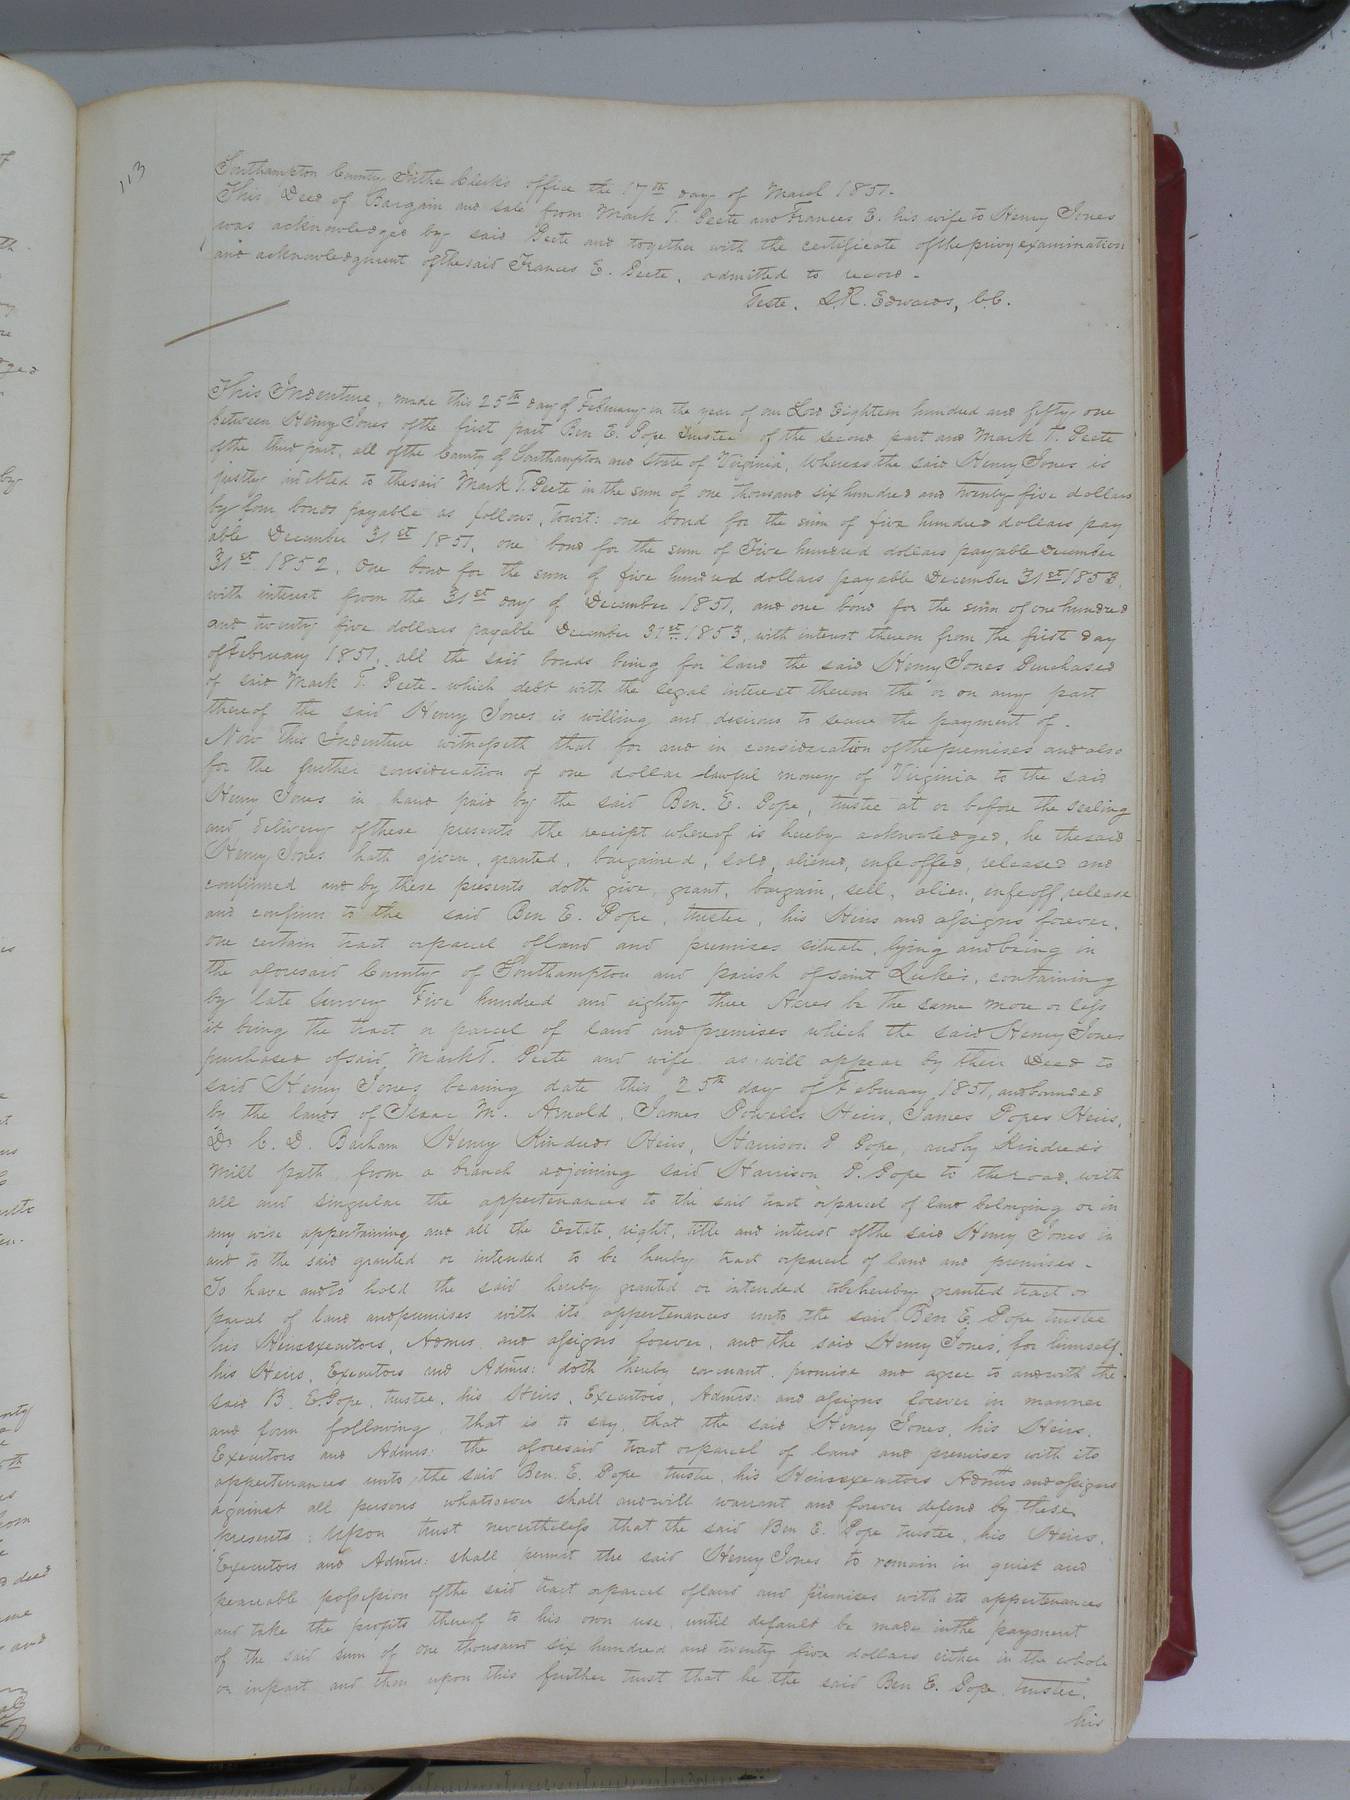 113
Southampton County In the Clerk's office the 17th day of March 1851.
This Deed of Bargain and sale from Mark T. Peete and Frances E. his wife to Henry Jones
was acknowledged by said Peete and together with the certificate of the privy examination
and acknowledgment of the said Frances E. Peete, admitted to record.
Teste. L.R. Edwards, C.C.
This Indenture, made this 25th day of February in the year of our Lord Eighteen hundred and fifty one
between Henry Jones of the first part Ben E. Pope trustee of the second part and Mark T. Peete
of the third part, all of the County of Southampton and State of Virginia, Whereas the said Henry Jones is
justly indebted to the said Mark T. Peete in the sum of one thousand six hundred and twenty five dollars
by four bonds payable as follows, Towit: one bond for the sum of five hundred dollars pay
able December 31st 1851, one bond for the sum of Five hundred dollars payable December
31st 1852, One bond for the sum of five hundred dollars payable December 31st 1853,
with interest from the 31st day of December 1851, and one bond for the sum of one hundred
and twenty five dollars payable December 31st 1853, with interest thereon from the first day
of February 1851, all the said bonds being for land the said Henry Jones Purchased
of said Mark T. Peete - which debt with the legal interest thereon the or on any part
thereof the said Henry Jones is willing and desirous to secure the payment of -
Now this Indenture witnesseth that for and in consideration of the premises and also
for the further consideration of one dollar lawful money of Virginia to the said
Henry Jones in hand paid by the said Ben. E. Pope, trustee at or before the sealing
and delivery of these presents the receipt whereof is hereby acknowledged, he the said
Henry Jones hath given, granted, bargained, sold, aliened, enfeoffed, released and
confirmed and by these presents doth give, grant, bargain, sell, alien, enfeoff, release
and confirm to the said Ben E. Pope, trustee, his Heirs and assigns forever,
one certain tract or parcel of land and premises situate, lying and being in
the aforesaid County of Southampton and parish of saint Luke's, containing
by late survey Five hundred and eighty three Acres be the same more or less
it being the tract or parcel of land and premises which the said Henry Jones
purchased of said Mark T. Peete and wife as will appear by their Deed to
said Henry Jones bearing date this 25th day of February 1851, and bounded
by the lands of Isaac M. Arnold, James Powells Heirs, James Popes Heirs,
Dr C. D. Barham Henry Kindreds Heirs, Harrison P Pope, and by Kindred's
mill path from a branch adjoining said Harrison P. Pope to the road, with
all and singular the appertenances to the said tract or parcel of land belonging or in
any wise appertaining and all the Estate, right, title and interest of the said Henry Jones in
and to the said granted or intended to be hereby tract or parcel of land and premises -
To have and to hold the said hereby granted or intended to be hereby granted tract or
parcel of land and premises with its appertenances unto the said Ben E. Pope trustee
his Heirs executors, Admrs and assigns forever, and the said Henry Jones, for himself,
his Heirs, Executors and Admrs: doth hereby covenant, promise and agree to and with the
said B. E. Pope, trustee, his Heirs, Executors, Admrs: and assigns forever in manner
and form following, that is to say, that the said Henry Jones, his Heirs,
Executors and Admrs: the aforesaid tract or parcel of land and premises with its
appertenances unto the said Ben. E. Pope trustee, his Heirs executors Admrs and assigns
against all persons whatsoever shall and will warrant and forever defend by these
presents; Upon trust nevertheless that the said Ben E. Pope trustee, his Heirs,
Executors and Admrs: shall permit the said Henry Jones to remain in quiet and
peaceable possession of the said tract or parcel of land and premises with its appertenances
and take the profits thereof to his own use, until default be made in the payment
of the said sum of one thousand six hundred and twenty five dollars either in the whole
or in part and then upon this further trust that he the said Ben E. Pope, trustee,
his